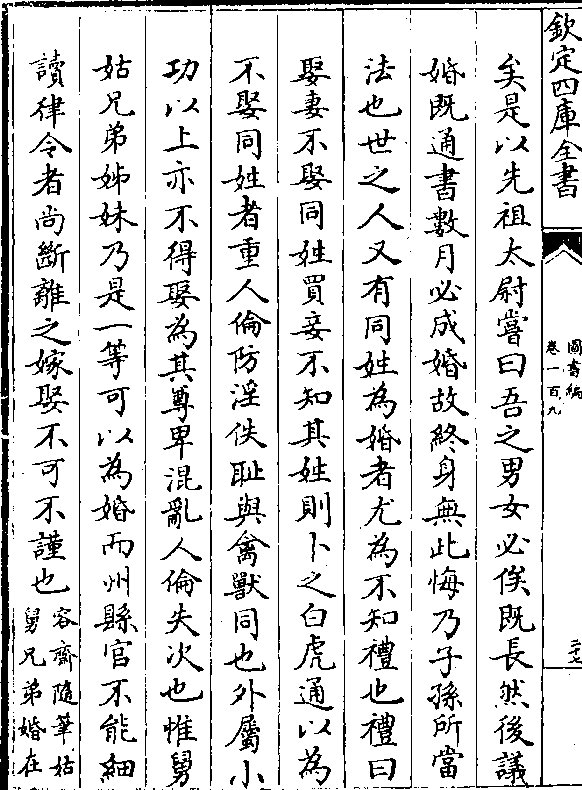 欽定四庫全書
圖書編
卷一百九
矣是以先祖太尉嘗曰吾之男女必俟既長然後議
婚既通書數月必成婚故終身無此悔乃子孫所當
法也世之人又有同姓為婚者尤為不知禮也禮曰
娶妻不娶同姓買妾不知其姓則卜之白虎通以為
不娶同姓者重人倫防淫佚耻與禽獸同也外屬小
功以上亦不得娶為其尊卑混亂人倫失次也惟舅
姑兄弟姊妹乃是一等可以為婚而州縣官不能細
讀律令者尚斷離之嫁娶不可不謹也
容齋隨筆姑
舅兄弟婚在